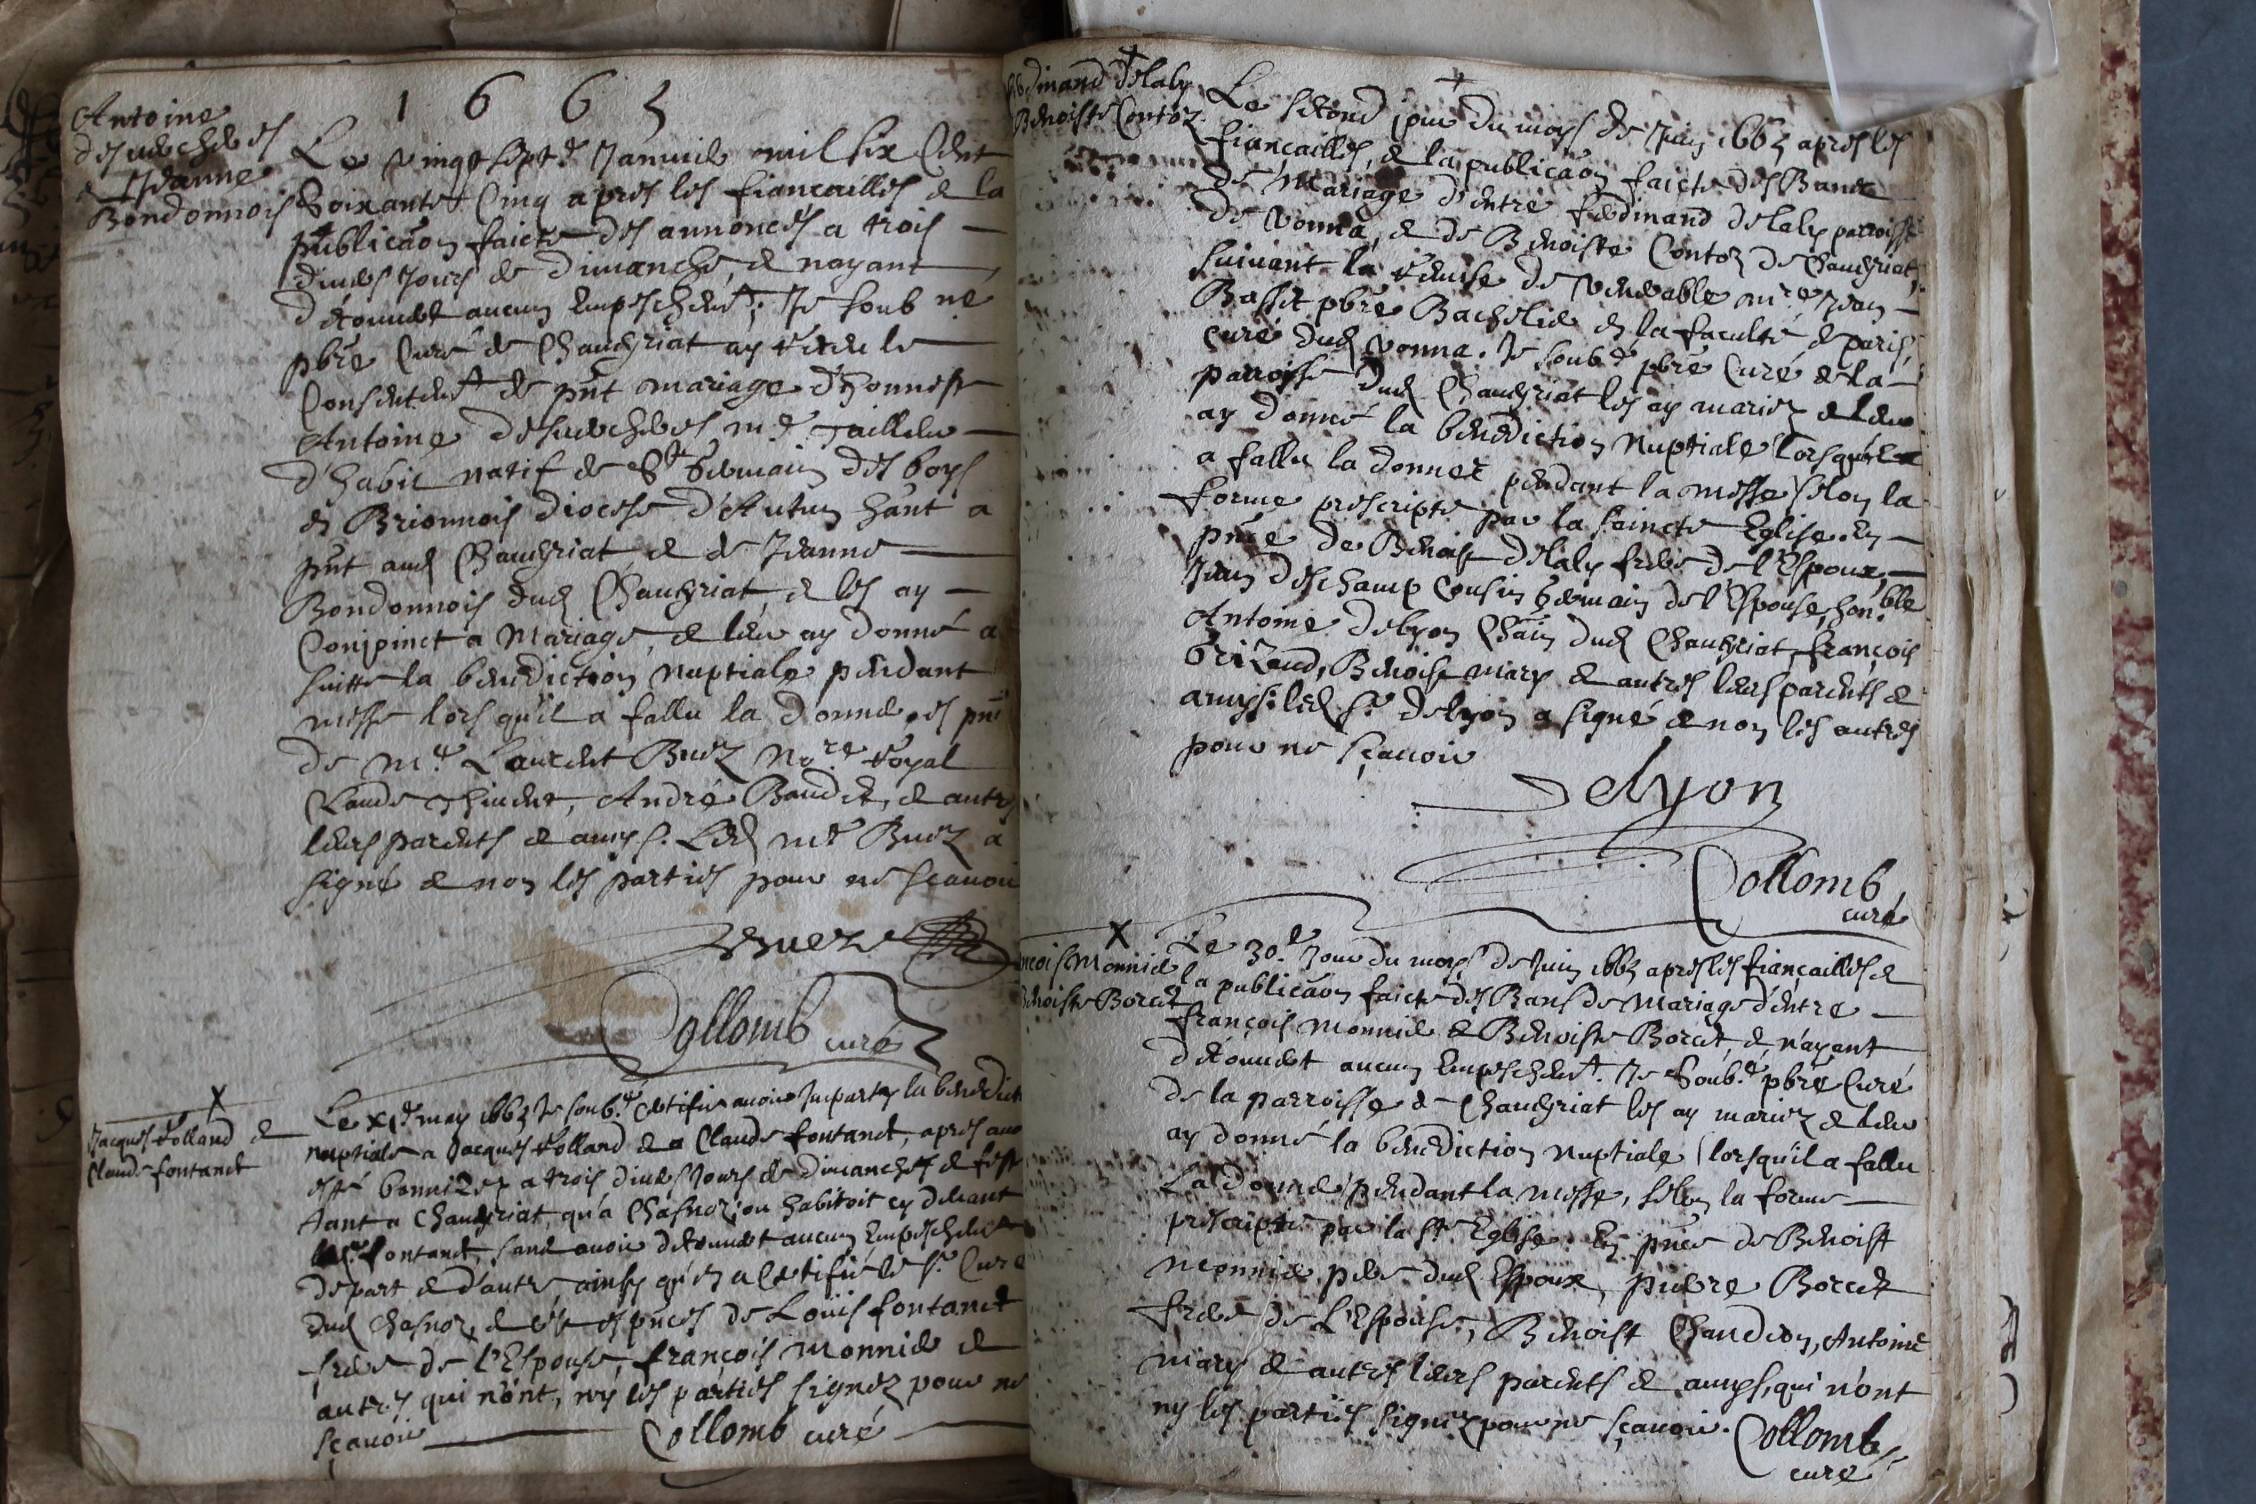 1 6 6 5
Antoine
desuerchers
& Jeanne
Bondonnois
Le vingt sept.e Januier mil six cent
Soixante & Cinq apres les fiancailles & la
publicaõn faicte des annonces a trois
diuers Jours de dimanche, & nayant
decouuert aucun Empeschem.t. Je soub né
pbrẽ Curé de Chaueyriat ay receu le
Consentem.t de pñt mariage d'honneste
Antoine desuerchers m.e Tailleur
d'habit natif de S.t Germain des boys
en Brionnois diocese d'Autun hãnt a
pñt aud Chaueyriat, & de Jeanne
Bondonnois dud Chaueyriat, & les ay
Conjoinct a Mariage, & leur ay donné a
suitte la benediction Nuptiale pendant
messe lors qu'il a fallu la donner, es pñ
de M.e Laurent Buez No.re Royal
Claude Thiuent, André Baudet, & autres
leurs parents & amys. Led m.e Buez a
signé & non les parties pour ne scauoir
Buez
Collomb curé
X
Jacques Rolland &
Claude fontanet
Le xj.e may 1665 Je soub.é Certifie auoir Imparty la benedict
nuptiale a Jacques Rolland & a Claude fontanet, apres auo
esté bannizez a trois diuers Jours de dimanches & feste
tant a Chaueyriat, qu'a Chasnoz, ou habitoit cy deuant
fontanet, sans auoir decouuert aucun Empeschem.t
de part & d'autre, ainsy qu'en a Certifié le S.r Curé
dud Chasnoz, & c'est es pñces de Loüis fontanet
frere de l'Espouse, françois Monnier &
autres qui n'ont, ny les parties signez pour ne
scauoir Collomb curé
ferdinand delaly
Benoiste Contoz
Le second jour du moys de Juin 1665 apres les
fiancailles, & la publicaõn faicte des Bancz
de Mariage d'entre ferdinand delaly parroisse
de Vonna, & de Benoiste Contoz de Chaueyriat,
suiuant la remise de Venerable m.re Jean
Basset pbrẽ Bachelier en la faculté de paris,
curé dud Vonna. Je soub.é pbrẽ Curé de la
parroisse dud Chaueyriat les ay mariez & leur
ay donné la benediction Nuptiale lorsqu'il
a fallu la donner pendant la messe selon la
forme prescripte par la saincte Eglise. En
pñce de Benoist delaly frere de l'Espoux,
Jean deschamp Cousin Germain de l'Espouse, hon.ble
Antoine delyon Châin dud Chaueyriat, françois
Grizaud, Benoist mary & autres leurs parents &
amys: led S.r delyon a signé & non les autres
pour ne sçauoir
Delyon
Collomb
curé
X
françois Monnier
Benoiste Borcet
Le 30.e Jour du moys de Juin 1665 apres les fiançailles &
la publicaõn faicte des Bans de Mariage d'entre
françois Monnier & Benoiste Borcet, & n'ayant
decouuert aucun Empeschem.t. Je Soub.é pbrẽ Curé
de la parroisse de Chaueyriat les ay mariez & leur
ay donné la benediction Nuptiale lorsqu'il a fallu
La donner pendant la messe, selon la forme
prescripte par la S.te Eglise. En pñce de Benoist
Monnier, pere dud Espoux, pierre Borcet
frere de l'Espouse, Benoist Chaudron, Antoine
mary & autres leurs parents & amys, qui n'ont
ny les parties signez pour ne sçauoir. Collomb
curé